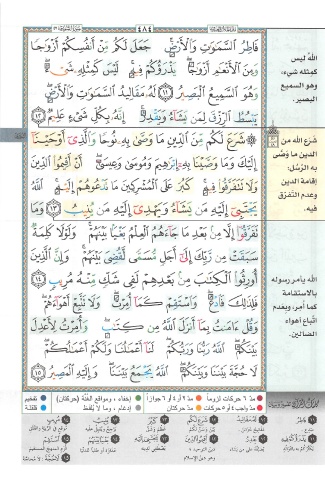 ٤٨٤
فَاطِرُ السَّمَٰوَٰتِ وَالْأَرْضِ جَعَلَ لَكُم مِّنْ أَنفُسِكُمْ أَزْوَٰجًا
وَمِنَ الْأَنْعَٰمِ أَزْوَٰجًا يَذْرَؤُكُمْ فِيهِ لَيْسَ كَمِثْلِهِ شَيْءٌ
وَهُوَ السَّمِيعُ الْبَصِيرُ ١١ لَهُ مَقَالِيدُ السَّمَٰوَٰتِ وَالْأَرْضِ
يَبْسُطُ الرِّزْقَ لِمَن يَشَاءُ وَيَقْدِرُ إِنَّهُ بِكُلِّ شَيْءٍ عَلِيمٌ ١٢
شَرَعَ لَكُم مِّنَ الدِّينِ مَا وَصَّىٰ بِهِ نُوحًا وَالَّذِي أَوْحَيْنَا
إِلَيْكَ وَمَا وَصَّيْنَا بِهِ إِبْرَٰهِيمَ وَمُوسَىٰ وَعِيسَىٰ أَنْ أَقِيمُوا الدِّينَ
وَلَا تَتَفَرَّقُوا فِيهِ كَبُرَ عَلَى الْمُشْرِكِينَ مَا تَدْعُوهُمْ إِلَيْهِ اللَّهُ
يَجْتَبِي إِلَيْهِ مَن يَشَاءُ وَيَهْدِي إِلَيْهِ مَن يُنِيبُ ١٣ وَمَا
تَفَرَّقُوا إِلَّا مِن بَعْدِ مَا جَاءَهُمُ الْعِلْمُ بَغْيًا بَيْنَهُمْ وَلَوْلَا كَلِمَةٌ
سَبَقَتْ مِن رَّبِّكَ إِلَىٰ أَجَلٍ مُّسَمًّى لَّقُضِيَ بَيْنَهُمْ وَإِنَّ الَّذِينَ
أُورِثُوا الْكِتَٰبَ مِن بَعْدِهِمْ لَفِي شَكٍّ مِّنْهُ مُرِيبٍ ١٤
فَلِذَٰلِكَ فَادْعُ وَاسْتَقِمْ كَمَا أُمِرْتَ وَلَا تَتَّبِعْ أَهْوَاءَهُمْ
وَقُلْ ءَامَنتُ بِمَا أَنزَلَ اللَّهُ مِن كِتَٰبٍ وَأُمِرْتُ لِأَعْدِلَ
بَيْنَكُمُ اللَّهُ رَبُّنَا وَرَبُّكُمْ لَنَا أَعْمَٰلُنَا وَلَكُمْ أَعْمَٰلُكُمْ
لَا حُجَّةَ بَيْنَنَا وَبَيْنَكُمُ اللَّهُ يَجْمَعُ بَيْنَنَا وَإِلَيْهِ الْمَصِيرُ ١٥
الله ليس
كمثله شيء،
وهو السميع
البصير.
شرع الله من
الدين ما وصّى
به الرّسل:
إقامة الدين
وعدم التفرق
فيه.
الله يأمر رسوله
بالاستقامة
كما أمر، وبعدم
اتباع أهواء
الضالين.
مدّ ٦ حركات لزوماً
مدّ ٢ أو ٤ أو ٦ جوازاً
إخفاء، ومواقع الغُنَّة (حركتان)
تفخيم
مدّ واجب ٤ أو ٥ حركات
مدّ حركتان
إدغام، وما لا يُلفظ
قلقلة